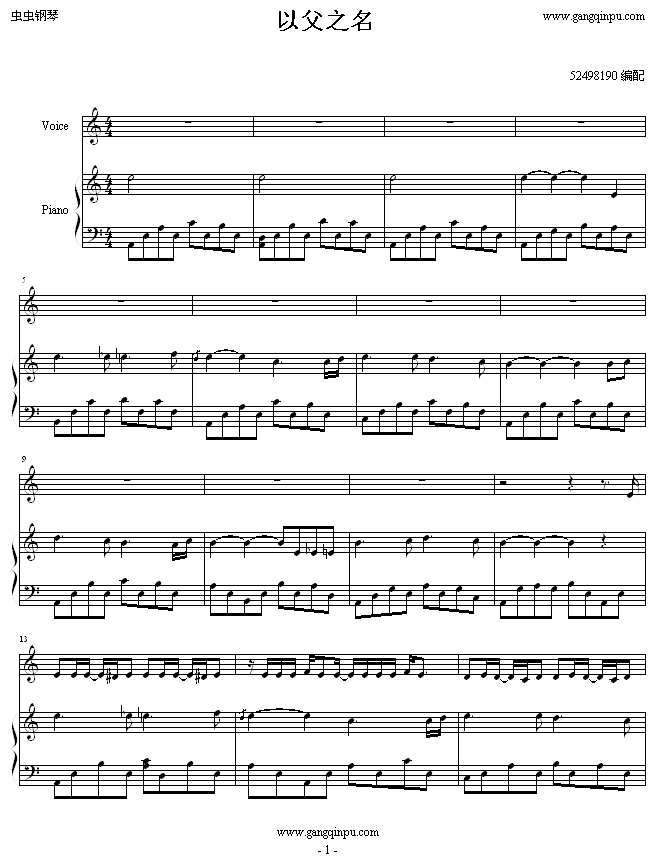 虫虫钢琴
www.gangqinpu.com
以父之名
52498190 编配
Voice
Piano
5
9
13
www.gangqinpu.com
- 1 -